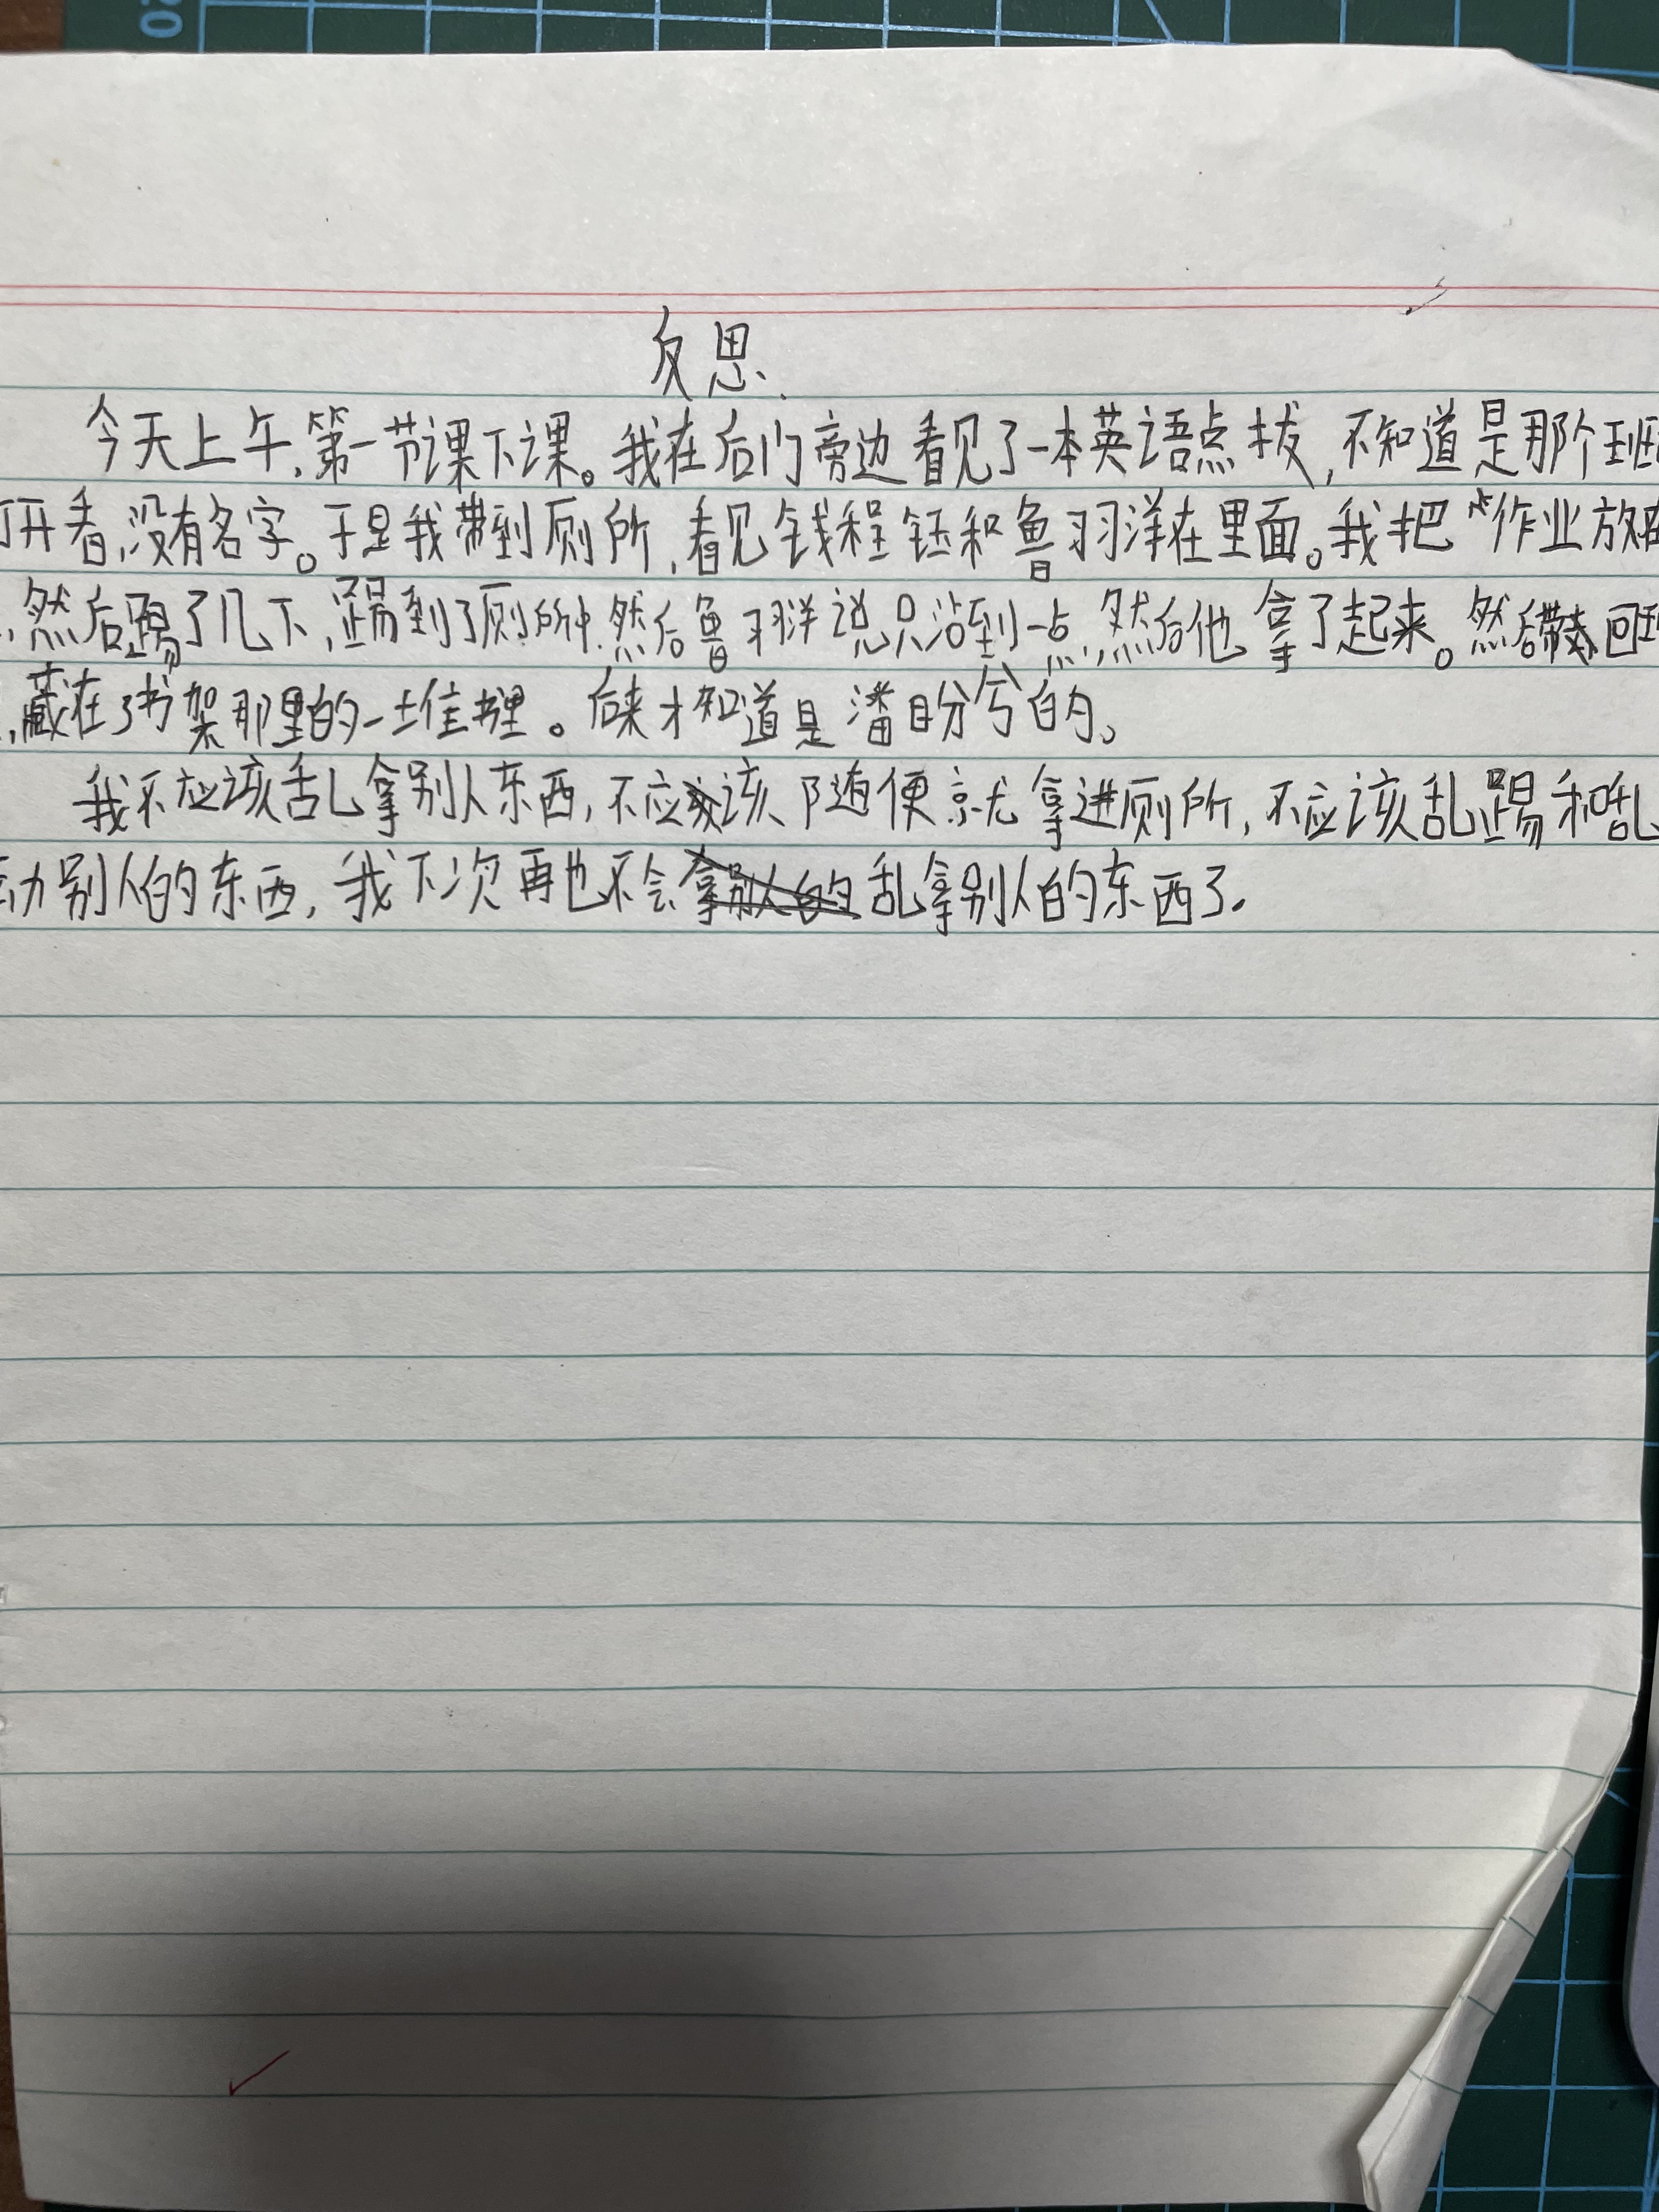 反思.
今天上午,第一节课下课。我在后门旁边看见了一本英语点拔,不知道是那个班
打开看,没有名字。于是我带到厕所,看见钱程钰和鲁羽洋在里面。我把作业放在
,然后踢了几下,踢到了厕所中.然后鲁羽洋说只沾到一点,然后他拿了起来。然后带回到
,藏在了书架那里的一堆书里。后来才知道是潘盼兮的。
我不应该乱拿别人东西,不应该随便就拿进厕所,不应该乱踢和乱
动别人的东西,我下次再也不会乱拿别人的东西了.
20